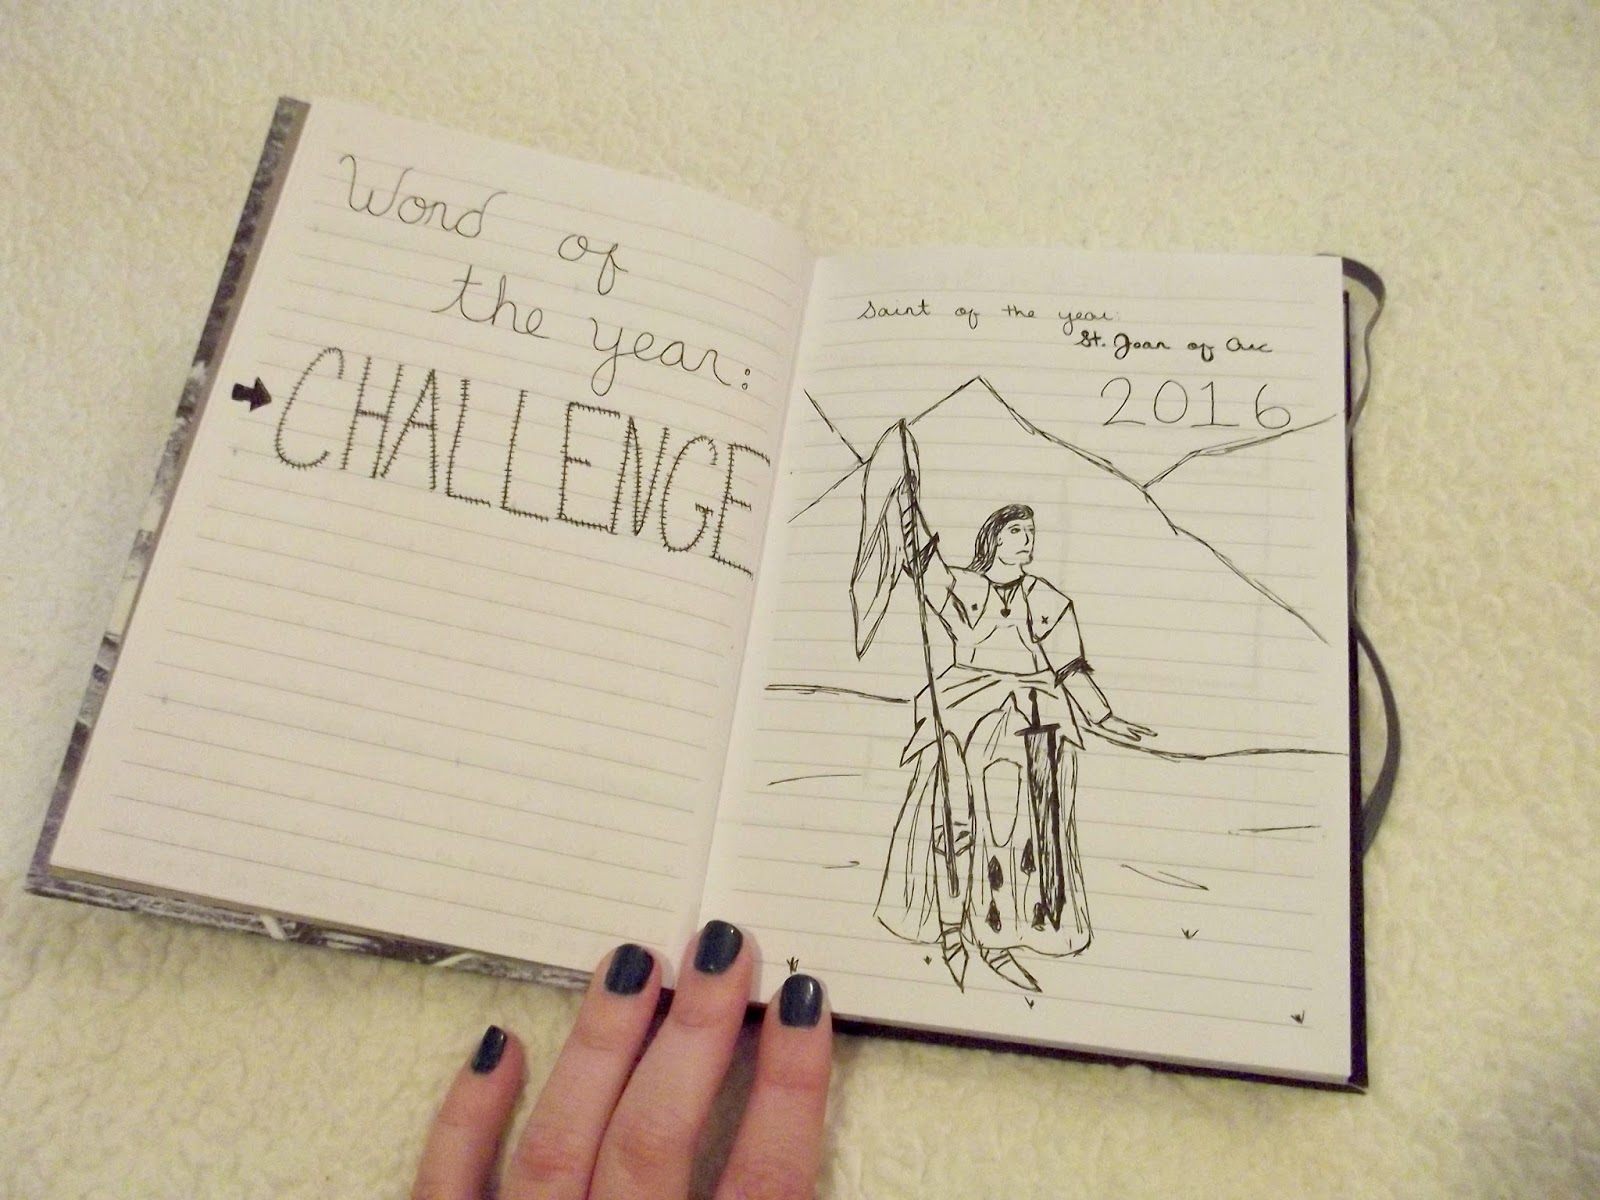 Word of
the year:
CHALLENGE
Saint of the year:
St. Joan of Arc
2016